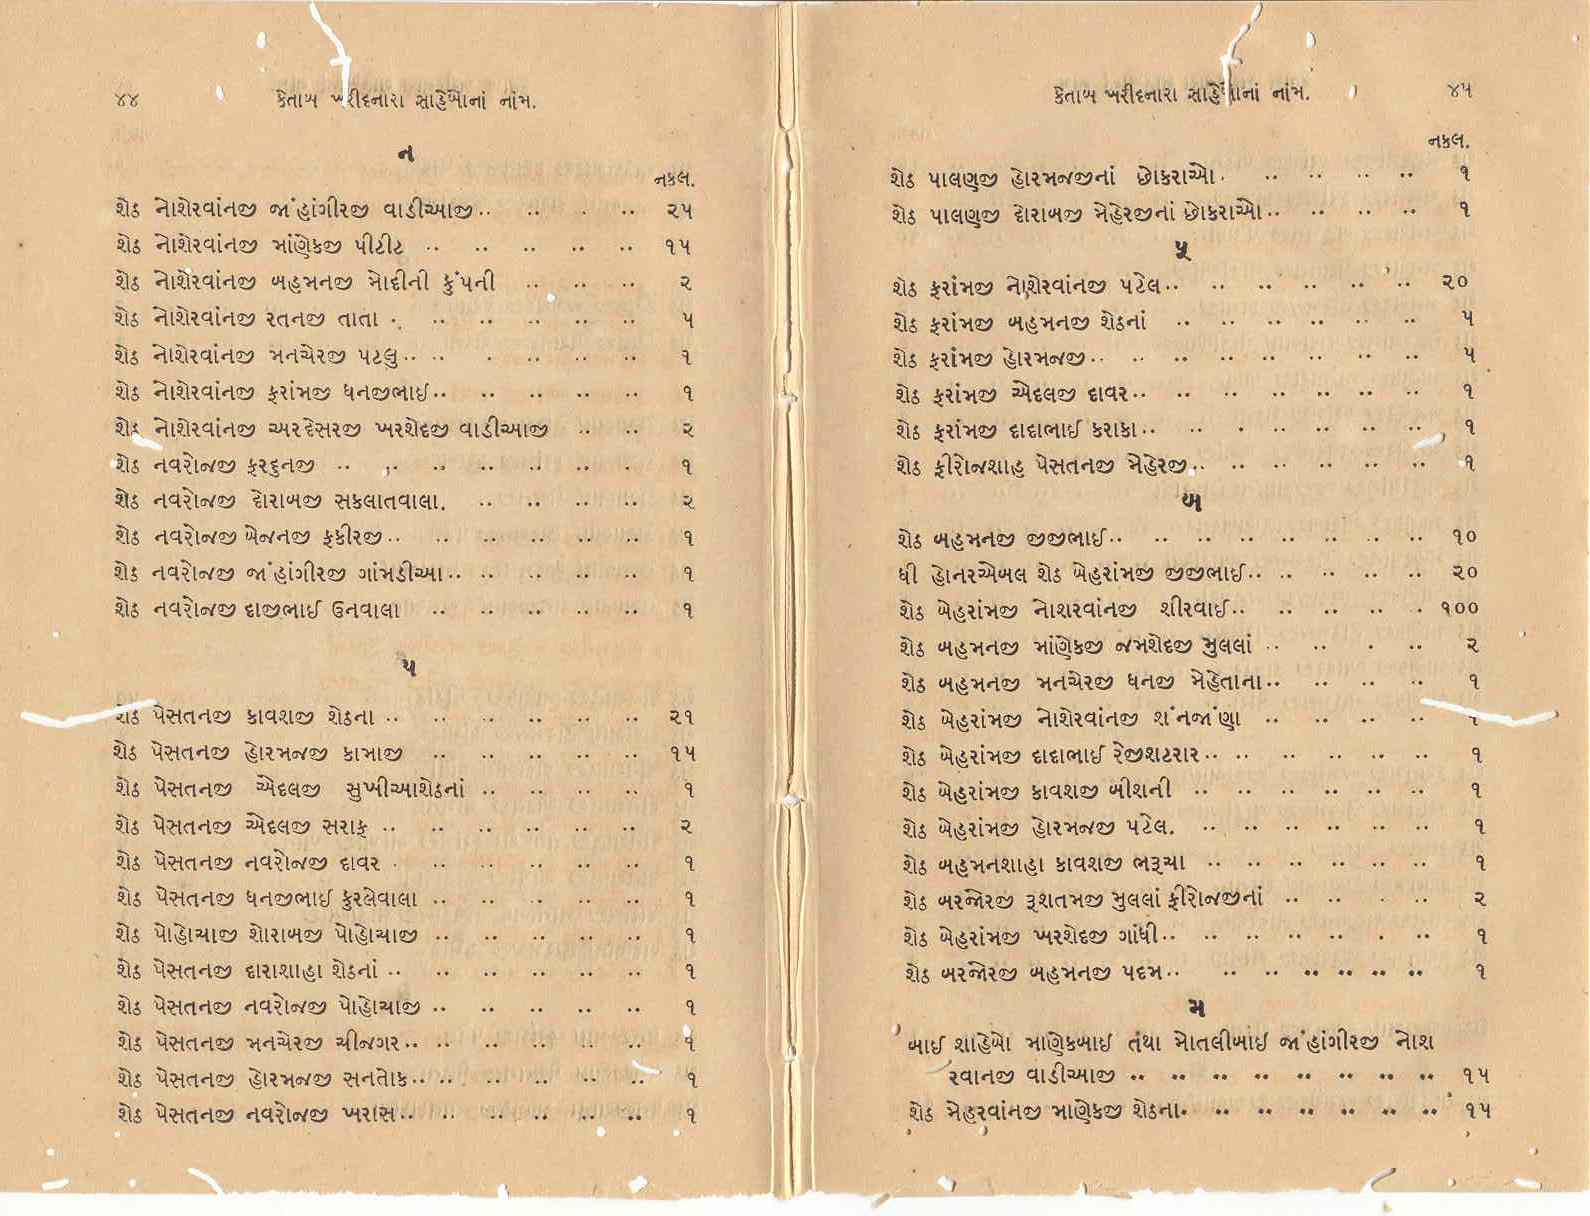 ૪૪ કેતાબ ખરીદનારા સાહેબોનાં નાંમ.
ન
નકલ.
શેઠ નોશેરવાંનજી જાંહાંગીરજી વાડીઆજી.. .. . .. ૨૫
શેઠ નોશેરવાંનજી માંણેકજી પીટીટ .. .. .. .. .. ૧૫
શેઠ નોશેરવાંનજી બહમનજી મોદીની કુંપની .. .. .. ૨
શેઠ નોશેરવાંનજી રતનજી તાતા .. .. .. .. .. .. ૫
શેઠ નોશેરવાંનજી મનચેરજી પટલુ.. .. . .. .. .. ૧
શેઠ નોશેરવાંનજી ફરાંમજી ધનજીભાઈ.. .. .. .. .. ૧
શેઠ નોશેરવાંનજી અરદેસરજી ખરશેદજી વાડીઆજી .. .. ૨
શેઠ નવરોજજી ફરદુનજી .. .. .. .. .. .. .. ૧
શેઠ નવરોજજી દોરાબજી સકલાતવાલા. .. .. .. .. ૨
શેઠ નવરોજજી બેજનજી ફકીરજી.. .. .. .. .. .. ૧
શેઠ નવરોજજી જાંહાંગીરજી ગાંમડીઆ.. .. .. .. .. ૧
શેઠ નવરોજજી દાજીભાઈ ઉનવાલા .. .. .. .. .. ૧
પ
શેઠ પેસતનજી કાવશજી શેઠના .. .. .. .. .. .. ૨૧
શેઠ પેસતનજી હોરમજજી કામાજી .. .. .. .. .. ૧૫
શેઠ પેસતનજી એદલજી સુખીઆશેઠનાં .. .. .. .. ૧
શેઠ પેસતનજી એદલજી સરાફ .. .. .. .. .. .. ૨
શેઠ પેસતનજી નવરોજજી દાવર . .. .. .. .. .. ૧
શેઠ પેસતનજી ધનજીભાઈ કુરલેવાલા .. .. .. .. .. ૧
શેઠ પોહોચાજી શોરાબજી પોહોચાજી .. .. .. .. .. ૧
શેઠ પેસતનજી દારાશાહા શેઠનાં .. .. .. .. .. .. ૧
શેઠ પેસતનજી નવરોજજી પોહોચાજી .. .. .. .. .. ૧
શેઠ પેસતનજી મનચેરજી ચીજગર.. .. .. .. .. .. ૧
શેઠ પેસતનજી હોરમજજી સનતોક.. .. .. .. .. .. ૧
શેઠ પેસતનજી નવરોજજી ખરાસ.. .. .. .. .. .. ૧
કેતાબ ખરીદનારા સાહેબોનાં નાંમ. ૪૫
નકલ.
શેઠ પાલણજી હોરમજજીનાં છોકરાઓ. .. .. .. .. ૧
શેઠ પાલણજી દોરાબજી મેહેરજીનાં છોકરાઓ.. .. .. .. ૧
ફ
શેઠ ફરાંમજી નોશેરવાંનજી પટેલ.. .. .. .. .. .. ૨૦
શેઠ ફરાંમજી બહમનજી શેઠનાં .. .. .. .. .. .. ૫
શેઠ ફરાંમજી હોરમજજી.. .. .. .. .. .. .. ૫
શેઠ ફરાંમજી એદલજી દાવર.. .. .. .. .. .. .. ૧
શેઠ ફરાંમજી દાદાભાઈ કરાકા.. .. . .. .. .. ૧
શેઠ ફીરોજશાહ પેસતનજી મેહેરજી.. .. .. .. .. .. ૧
બ
શેઠ બહમનજી જીજીભાઈ.. .. .. .. .. .. .. .. ૧૦
ધી હોનરએબલ શેઠ બેહરાંમજી જીજીભાઈ.. .. .. .. .. ૨૦
શેઠ બેહરાંમજી નોશરવાંનજી શીરવાઈ.. .. .. .. . ૧૦૦
શેઠ બહમનજી માંણેકજી જમશેદજી મુલલાં .. .. . .. ૨
શેઠ બહમનજી મનચેરજી ધનજી મેહેતાના.. .. .. .. ૧
શેઠ બેહરાંમજી નોશેરવાંનજી શંનજાંણા .. .. .. .. ૧
શેઠ બેહરાંમજી દાદાભાઈ રેજીશટરાર.. .. .. .. .. ૧
શેઠ બેહરાંમજી કાવશજી બીશની .. .. .. .. .. .. ૧
શેઠ બેહરાંમજી હોરમજજી પટેલ. .. .. .. .. .. .. ૧
શેઠ બહમનશાહા કાવશજી ભરૂચા .. .. .. .. .. .. ૧
શેઠ બરજોરજી રૂશતમજી મુલલાં ફીરોજજીનાં .. .. . .. ૨
શેઠ બેહરાંમજી ખરશેદજી ગાંધી.. .. .. .. .. . .. ૧
શેઠ બરજોરજી બહમનજી પદમ.. .. .. .. .. .. .. ૧
મ
બાઈ શાહેબો માણેકબાઈ તંથા મોતલીબાઈ જાંહાંગીરજી નોશ
રવાનજી વાડીઆજી .. .. .. .. .. .. .. .. ૧૫
શેઠ મેહરવાંનજી માણેકજી શેઠના. .. .. .. .. .. .. ૧૫